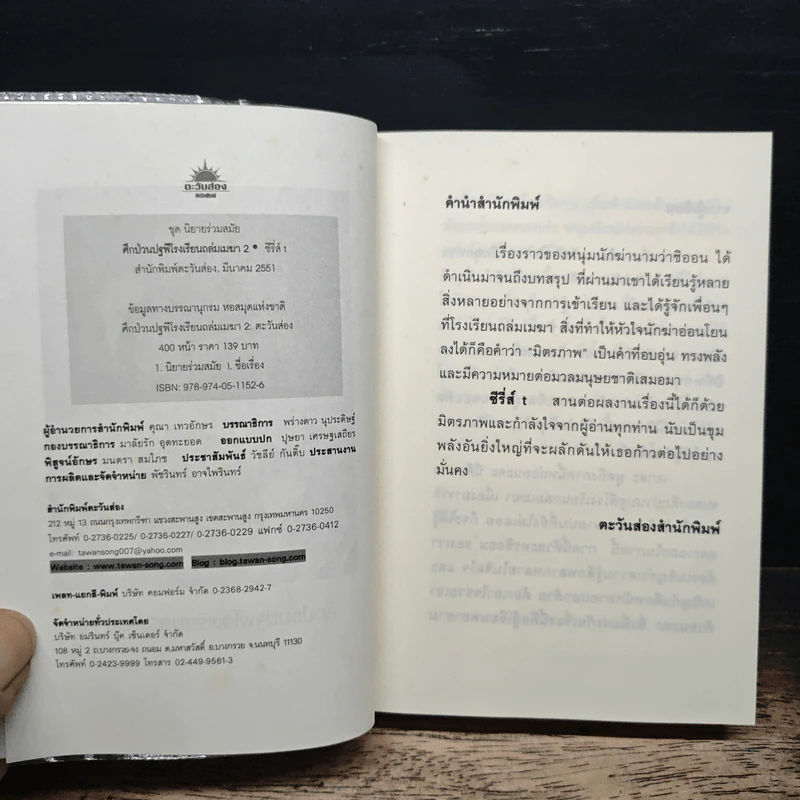 ตะวันส่อง
สำนักพิมพ์
ชุด นิยายร่วมสมัย
ศึกป่วนปฐพีโรงเรียนถล่มเมฆา 2 • ซีรี่ส์ t
สำนักพิมพ์ตะวันส่อง, มีนาคม 2551
ข้อมูลทางบรรณานุกรม หอสมุดแห่งชาติ
ศึกป่วนปฐพีโรงเรียนถล่มเมฆา 2: ตะวันส่อง
400 หน้า ราคา 139 บาท
1. นิยายร่วมสมัย 1. ชื่อเรื่อง
ISBN: 978-974-05-1152-6
ผู้อำนวยการสำนักพิมพ์ คุณา เทวอักษร บรรณาธิการ พร่างดาว นุประดิษฐ์
กองบรรณาธิการ มาลัยรัก อุตทะยอด ออกแบบปก ปุษยา เศรษฐเสถียร
พิสูจน์อักษร มนตรา สมโภช ประชาสัมพันธ์ วัชลีย์ กันติ๊บ ประสานงาน
การผลิตและจัดจำหน่าย พัชรินทร์ อาจไพรินทร์
สำนักพิมพ์ตะวันส่อง
212 หมู่ 13 ถนนกรุงเทพกรีฑา แขวงสะพานสูง เขตสะพานสูง กรุงเทพมหานคร 10250
โทรศัพท์ 0-2736-0225/ 0-2736-0227/ 0-2736-0229 แฟกซ์ 0-2736-0412
e-mail: tawansong007@yahoo.com
Website : www.tawan-song.com Blog : blog.tawan-song.com
เพลท-แยกสี-พิมพ์ บริษัท คอมฟอร์ม จำกัด 0-2368-2942-7
จัดจำหน่ายทั่วประเทศโดย
บริษัท อมรินทร์ บุ๊ค เซ็นเตอร์ จำกัด
108 หมู่ 2 ถ.บางกรวย-จง ถนอม ต.มหาสวัสดิ์ อ.บางกรวย จ.นนทบุรี 11130
โทรศัพท์ 0-2423-9999 โทรสาร 02-449-9561-3
คำนำสำนักพิมพ์
เรื่องราวของหนุ่มนักฆ่านามว่าชิออน ได้
ดำเนินมาจนถึงบทสรุป ที่ผ่านมาเขาได้เรียนรู้หลาย
สิ่งหลายอย่างจากการเข้าเรียน และได้รู้จักเพื่อนๆ
ที่โรงเรียนถล่มเมฆา สิ่งที่ทำให้หัวใจนักฆ่าอ่อนโยน
ลงได้ก็คือคำว่า "มิตรภาพ" เป็นคำที่อบอุ่น ทรงพลัง
และมีความหมายต่อมวลมนุษยชาติเสมอมา
ซีรี่ส์ t สานต่อผลงานเรื่องนี้ได้ก็ด้วย
มิตรภาพและกำลังใจจากผู้อ่านทุกท่าน นับเป็นขุม
พลังอันยิ่งใหญ่ที่จะผลักดันให้เธอก้าวต่อไปอย่าง
มั่นคง
ตะวันส่องสำนักพิมพ์